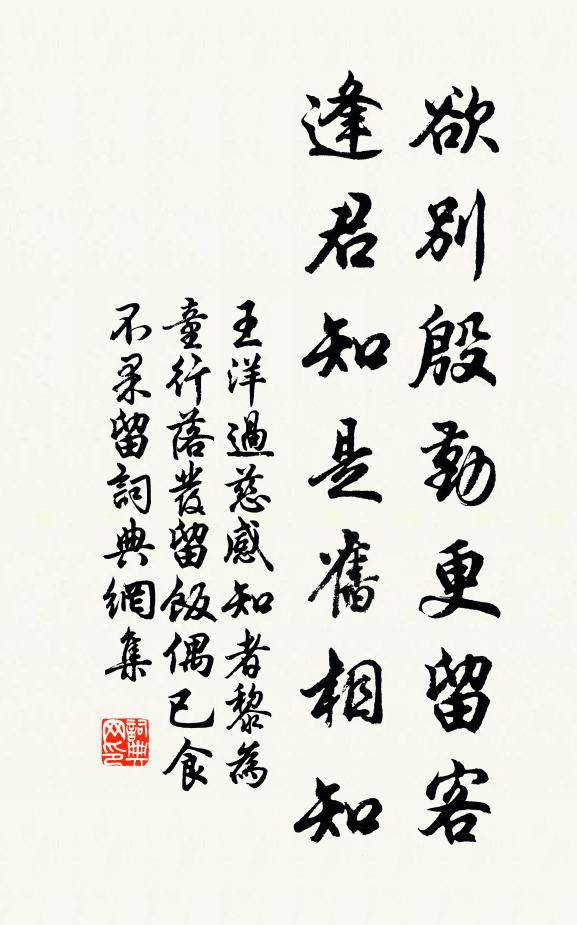 欲別殷勤更留客
逢君知是舊相知
王洋過慈感知者黎為
童行落發留飯偶已食
不果留詞典網集
詞典網印